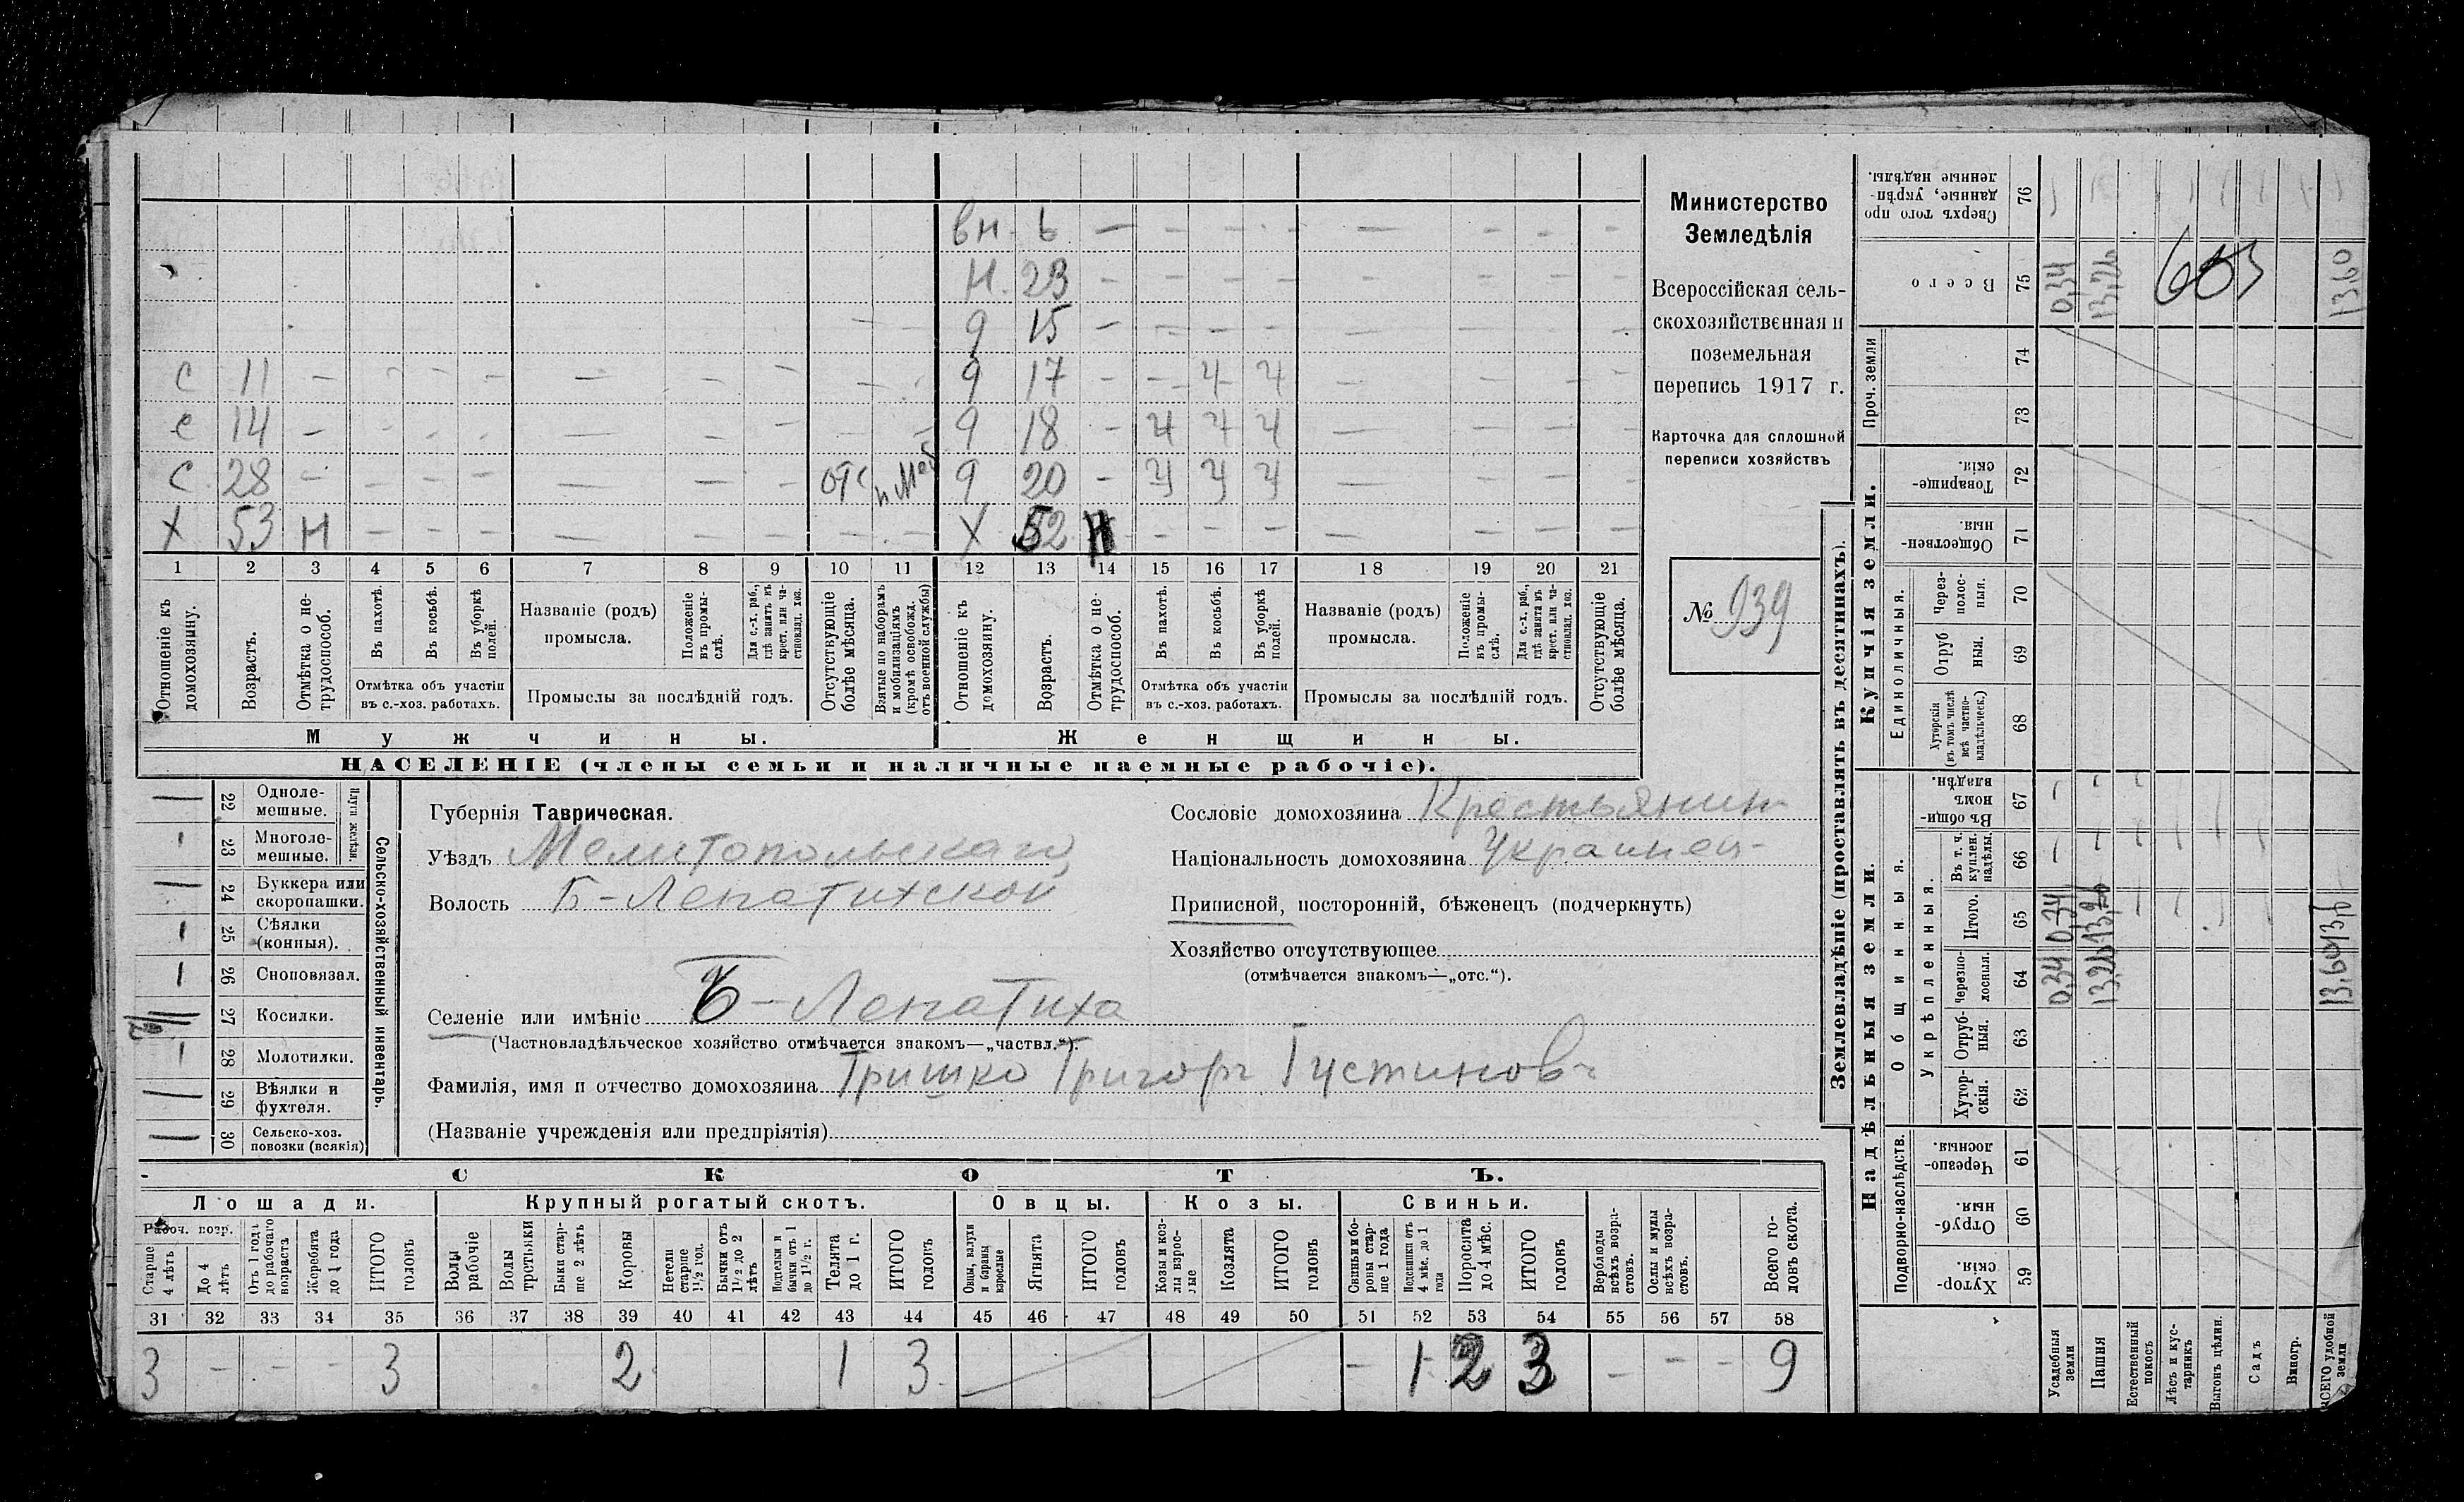 вн. 6 — — — — — — — — —
Н. 23 — — — — — — — —
д 15 — — — — — — — —
с 11 — — — — — — — — — — д 17 — — Ч Ч — — — —
с 14 — — — — — — — — — — д 18 — Ч Ч Ч — — — —
с 28 — — — — — — — отс п моб д 20 — Ч Ч Ч — — — —
Х 53 Н — — — — — — — — Х 52 Н — — — — — — —
1 2 3 4 5 6 7 8 9 10 11 12 13 14 15 16 17 18 19 20 21
Отношеніе къ домохозяину.
Возрастъ.
Отмѣтка о нетрудоспособ.
Въ пахотѣ.
Въ косьбѣ.
Въ уборкѣ полей.
Отмѣтка объ участіи
въ с.-хоз. работахъ.
Названіе (родъ)
промысла.
Положеніе въ промыслѣ.
Для с.-х. раб., гдѣ занятъ въ крест. или частновлад. хоз.
Промыслы за послѣдній годъ.
Отсутствующіе болѣе мѣсяца.
Взятые по наборамъ и мобилизаціямъ (кромѣ освобожд. отъ военной службы)
Отношеніе къ домохозяину.
Возрастъ.
Отмѣтка о нетрудоспособ.
Въ пахотѣ.
Въ косьбѣ.
Въ уборкѣ полей.
Отмѣтка объ участіи
въ с.-хоз. работахъ.
Названіе (родъ)
промысла.
Положеніе въ промыслѣ.
Для с.-х. раб., гдѣ занята въ крест. или частновлад. хоз.
Промыслы за послѣдній годъ.
Отсутствующіе болѣе мѣсяца.
Мужчины. Женщины.
НАСЕЛЕНІЕ (члены семьи и наличные наемные рабочіе).
Министерство
Земледѣлія
Всероссійская сель-
скохозяйственная и
поземельная
перепись 1917 г.
Карточка для сплошной
переписи хозяйствъ
№ 939
Сельско-хозяйственный инвентарь.
Плуги желѣзн.
— 22 Одноле-
мешные.
1 23 Многоле-
мешные.
— 24 Буккера или
скоропашки.
1 25 Сѣялки
(конныя).
1 26 Сноповязал.
27 Косилки.
1 28 Молотилки.
— 29 Вѣялки и
фухтеля.
— 30 Сельско-хоз.
повозки (всякія)
Губернія Таврическая.
Уѣздъ Мелитопольскаго
Волость Б-Лепатихской
Селеніе или имѣніе Б-Лепатиха
(Частновладѣльческое хозяйство отмѣчается знакомъ—„частвл.“).
Фамилія, имя и отчество домохозяина Гришко Григоръ Густиновъ
(Названіе учрежденія или предпріятія)
Сословіе домохозяина Крестьянинъ
Національность домохозяина Украинец-
Приписной, посторонній, бѣженецъ (подчеркнуть)
Хозяйство отсутствующее
(отмѣчается знакомъ—„отс.“).
СКОТЪ.
Лошади. Крупный рогатый скотъ. Овцы. Козы. Свиньи.
Рабоч. возр.
Старше 4 лѣтъ
До 4 лѣтъ
Отъ 1 года до рабочаго возраста
Жеребята до 1 года
ИТОГО головъ
Волы рабочіе
Волы третьяки
Быки старше 2 лѣтъ
Коровы
Нетели старше 1½ год.
Бычки отъ 1½ до 2 лѣтъ
Подтелки и бычки отъ 1 до 1½ г.
Телята до 1 г.
ИТОГО головъ
Овцы, валухи и бараны взрослые
Ягнята
ИТОГО головъ
Козы и козлы взрослые
Козлята
ИТОГО головъ
Свиньи и боровы старше 1 года
Подсвинки отъ 4 мѣс. до 1 года
Поросята до 4 мѣс.
ИТОГО головъ
Верблюды всѣхъ возрастовъ.
Ослы и мулы всѣхъ возрастовъ.
Всего головъ скота.
31 32 33 34 35 36 37 38 39 40 41 42 43 44 45 46 47 48 49 50 51 52 53 54 55 56 57 58
3 — — — 3 2 1 3 — 1 2 3 — — — 9
Землевладѣніе (проставлять въ десятинахъ).
Купчія земли.
Надѣльныя земли.
Проч. земли
Единоличныя.
Общинныя.
Укрѣпленныя.
Подворно-наслѣдств.
Сверхъ того про
данные, укрѣп-
ленные надѣлы. 76
Всего 75 0,34 13,26 603 13,60
74
73
Товарище-
скія. 72
Обществен-
ныя. 71
Черезполосныя. 70
Отрубныя. 69
Хуторскія (въ томъ числѣ всѣ частновладѣльческ.) 68
Въ общи
номъ
владѣн. 67
Въ т. ч. куплен. надѣлы. 66
Итого. 65 0,34 13,26 13,6
Черезполосныя. 64 0,34 13,26 13,60
Отрубныя. 63
Хуторскія. 62
Черезпо-
лосныя. 61
Отруб-
ныя. 60
Хутор-
скія. 59
Усадебныя земли
Пашня
Естественный покосъ
Лѣсъ и кустарникъ
Выгонъ цѣлин.
Садъ
Виногр.
ВСЕГО удобной земли